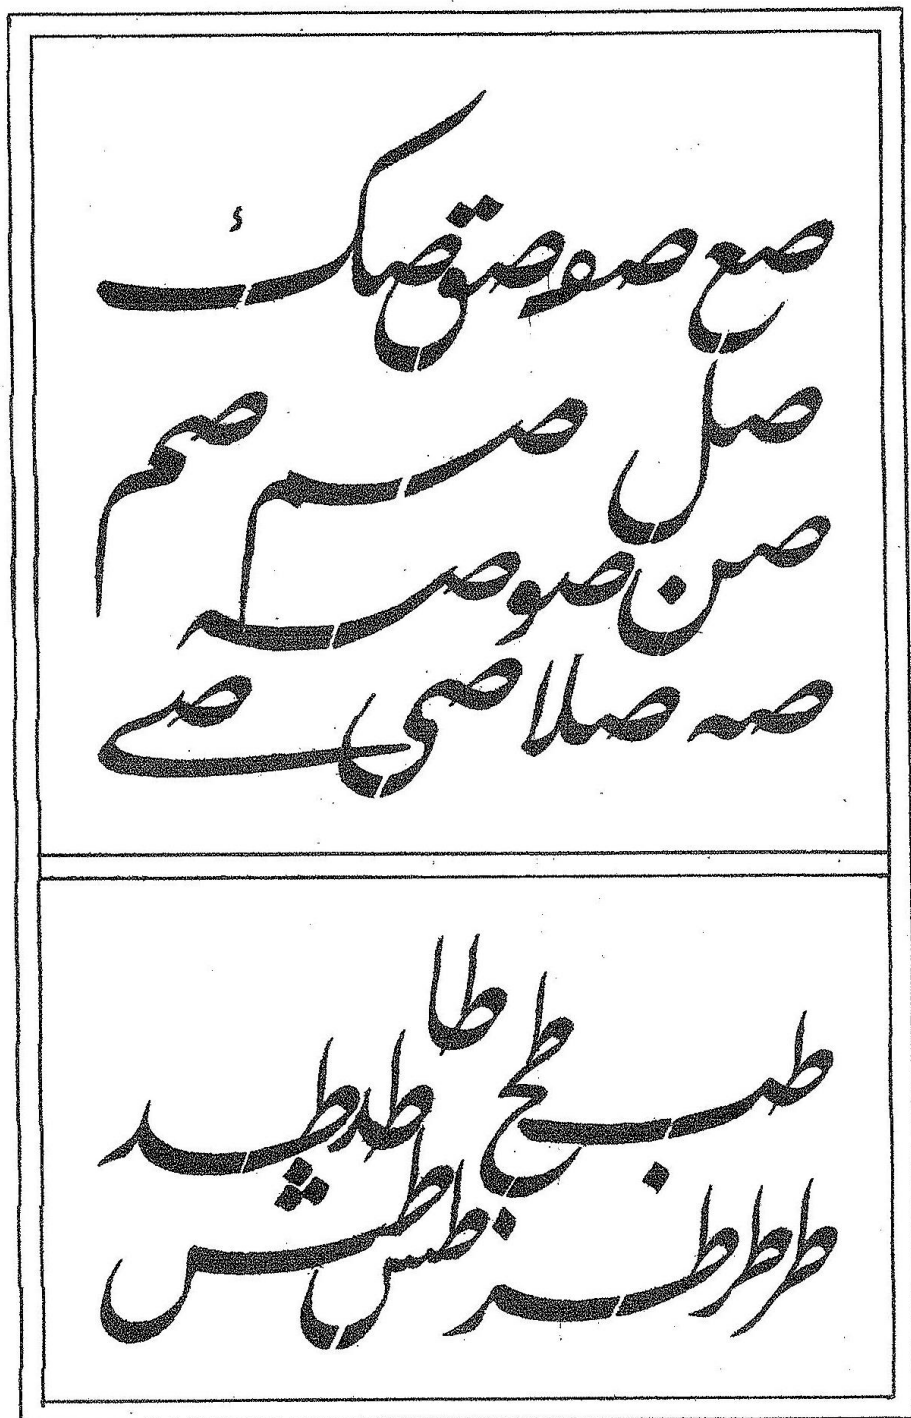 صع صو صق صک
صل صم صم
صن صو صه
صه صلا صی صے
طب طح طا طد طد
طر طر طز طس طش